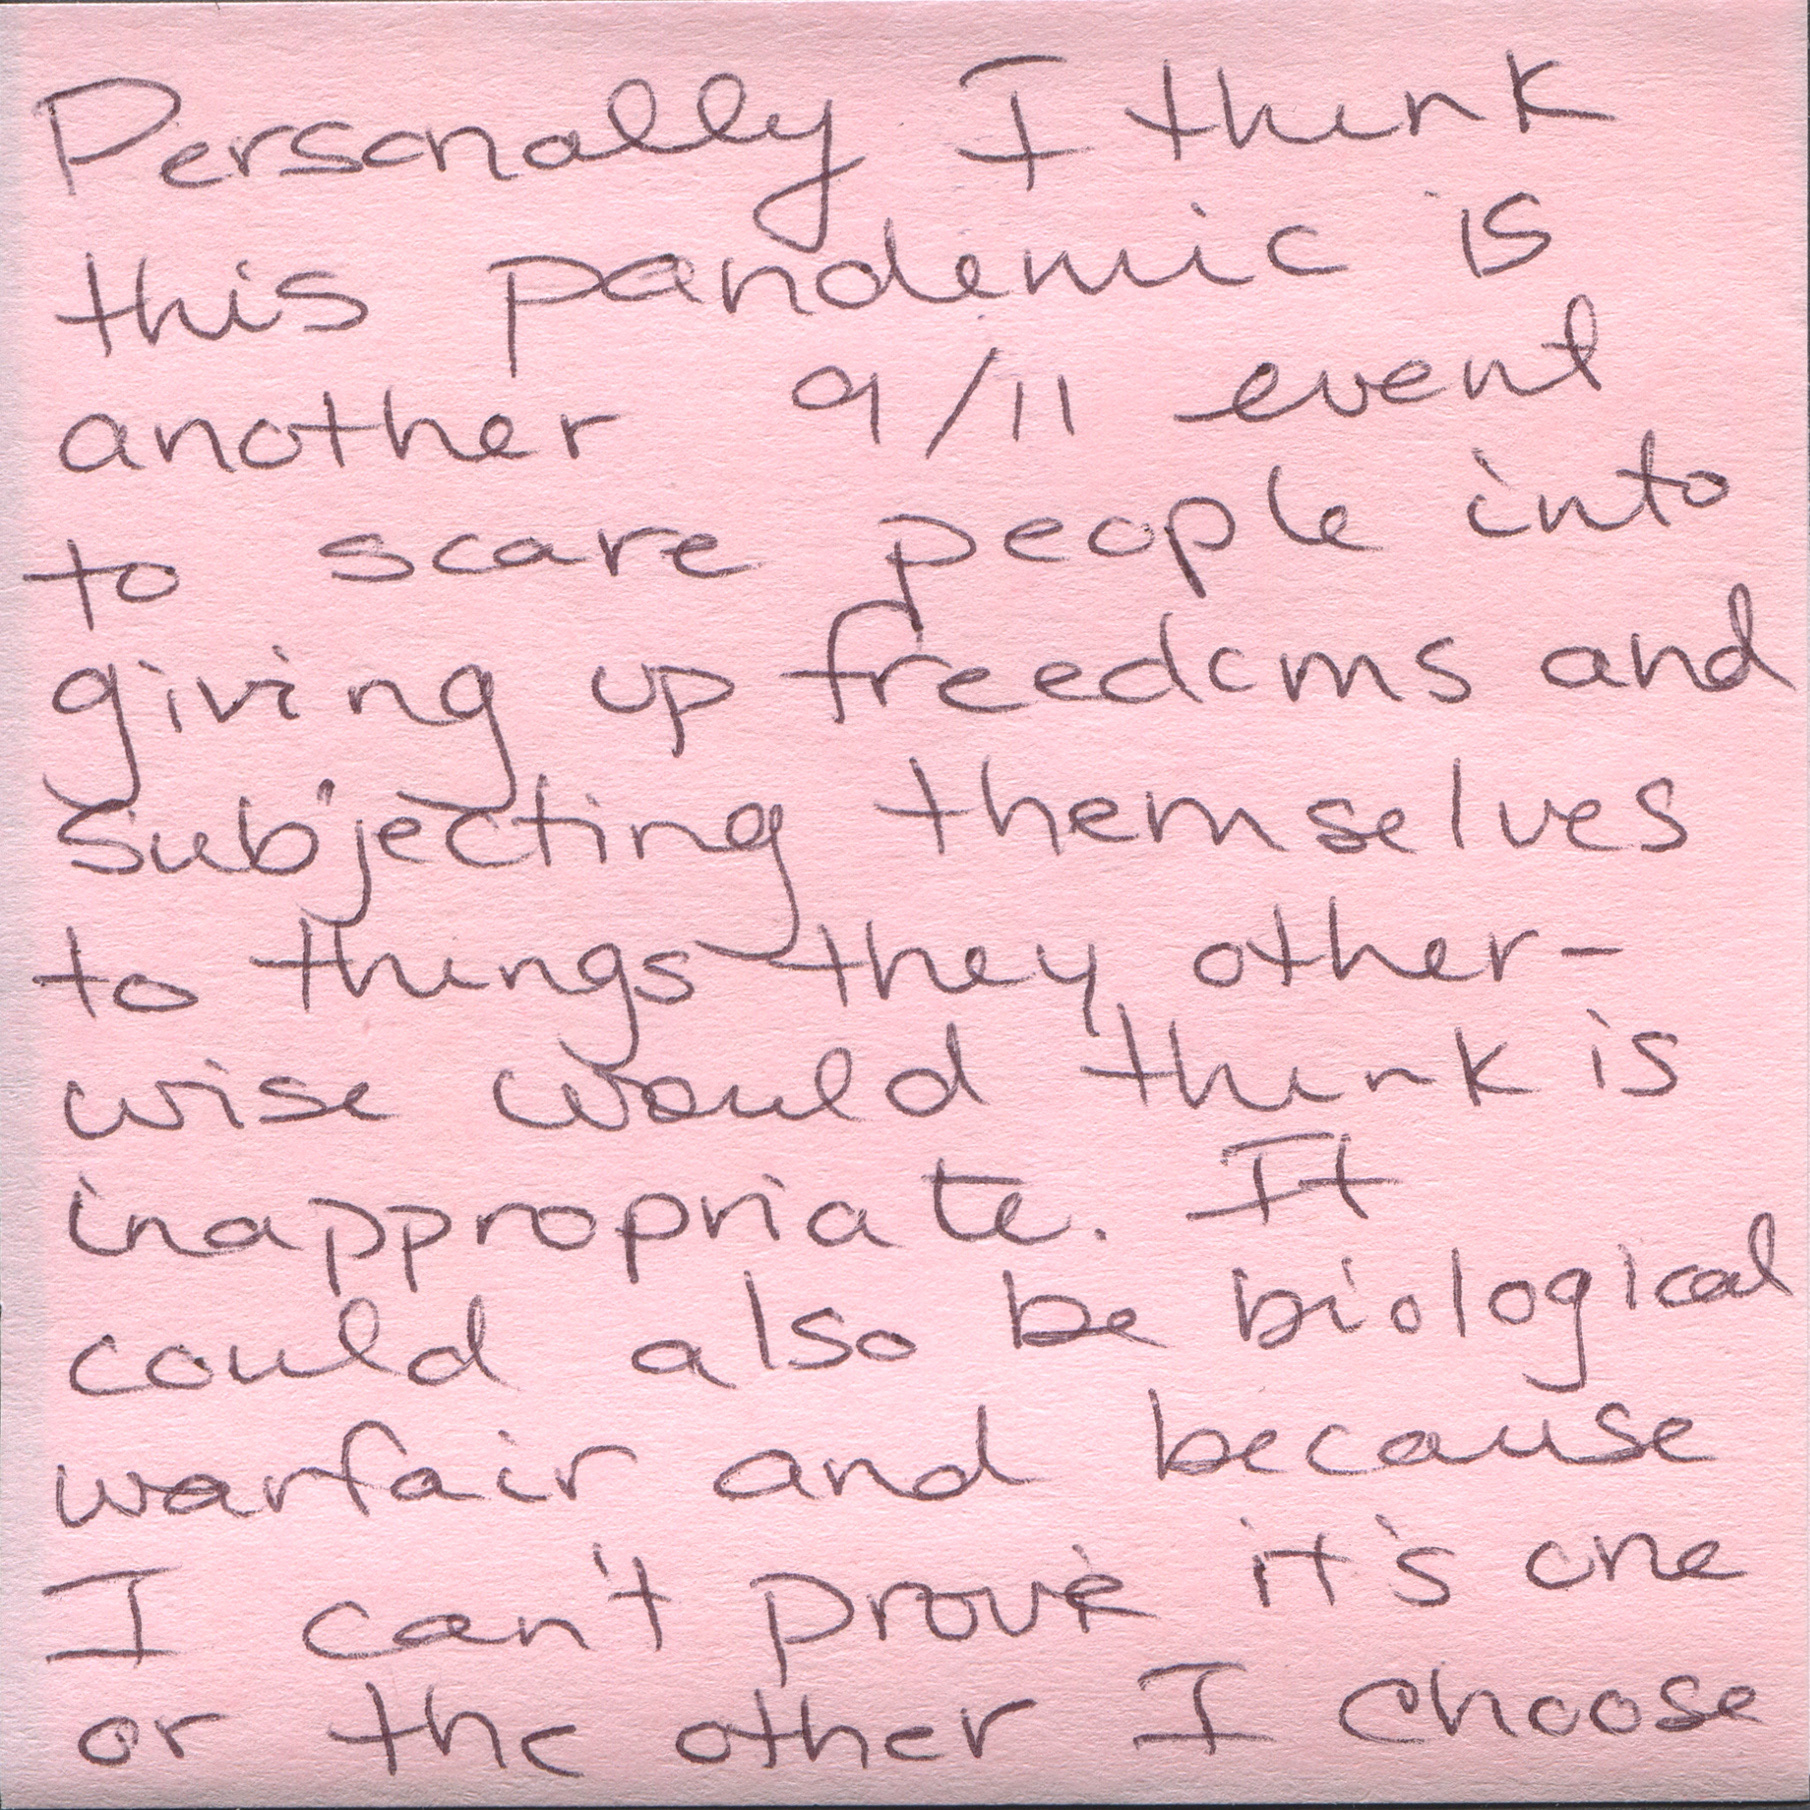 Personally I think
this pandemic is
another 9/11 event
to scare people into
giving up freedoms and
subjecting themselves
to things they other-
wise would think is
inappropriate. It
could also be biological
warfair and because
I can't prove it's one
or the other I choose